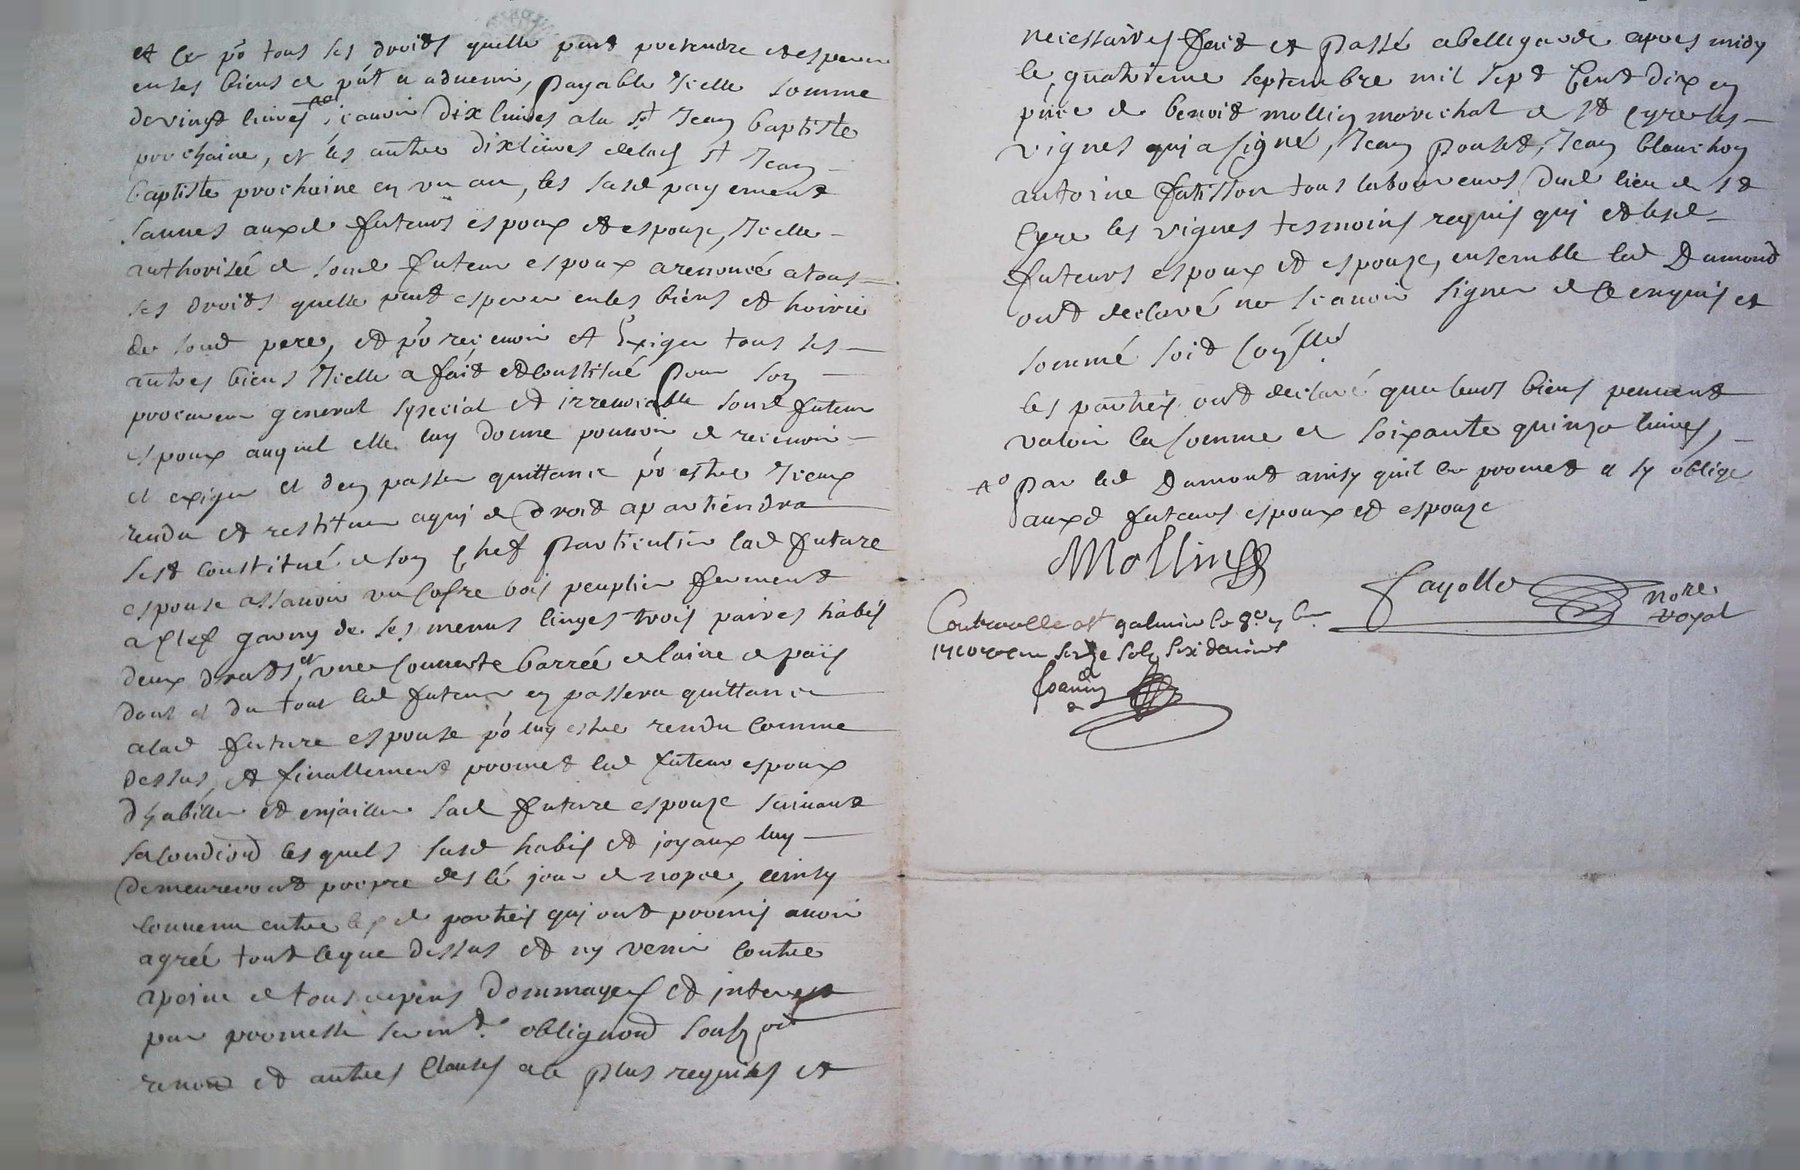 et ce po tous ses droits quelle peut pretendre et esperer
en ses biens et pnt a advenir, payable icelle somme
de vingt livres Ao scavoir dix livres a la st Jean baptiste
prochaine, et les autres dix livres de lad st Jean
baptiste prochaine en un an, les susd payements
auxd futurs espoux et espouze, icelle
authorisée de sond futeur espoux a renoncé a tous
ses droits quelle peut esperer en les biens et hoirie
de sond pere, et po recevoir et exiger tous ses
autres biens icelle a fait et constitué pour son
procureur general special et irrevocable sond futeur
espoux auquel elle luy donne pouvoir de recevoir
et exiger et den passer quittance po estre iceux
rendu et restitué a qui de droit apartiendra
sest constitué de son chef particulier lad future
espouse assavoir un cofre bois peuplier fermant
a clef garny de ses menus linges trois paires habis
deux draps et une couverte barrée de laine de païs
dont et du tout led futeur en passera quittance
a lad future espouse po luy estre rendu comme
dessus, et finallement promet led futeur espoux
dhabiller et enjoailler sad future espouze suivant
sa condiond lesquels susd habis et joyaux luy
demeureront propre des le jour de nopce, ainsy
convenu entre lesd parties qui ont promis avoir
agreé tout ce que dessus et ny venir contre
a peine de tous depens dommages et interest
par promesse sermt obligaond
renond et autres clauses a ce plus requises et
necessaires fait et passé a bellegarde apres midy
le quatorzieme septembre mil sept cent dix en
pnce de benoit mollin marechal de st Cyre les
vignes qui a signé, Jean poulet, Jean blanchon
antoine fatisson tous laboureurs dud lieu de st
Cyre les vignes tesmoins requis qui et lesd
futeurs espoux et espouze, ensemble led Dumond
ont declaré ne scavoir signer de ce enquis et
sommé soit conllé
les parties ont declaré que leurs biens peuvent
valoir la somme de soixante quinze livres,
Ao par led Dumont ainsy quil le promet et sy oblige
auxd futeurs espoux et espouze
Mollin
fayolle nore royal
Controllé a st galmier le 8e
1710 seize sols six deniers